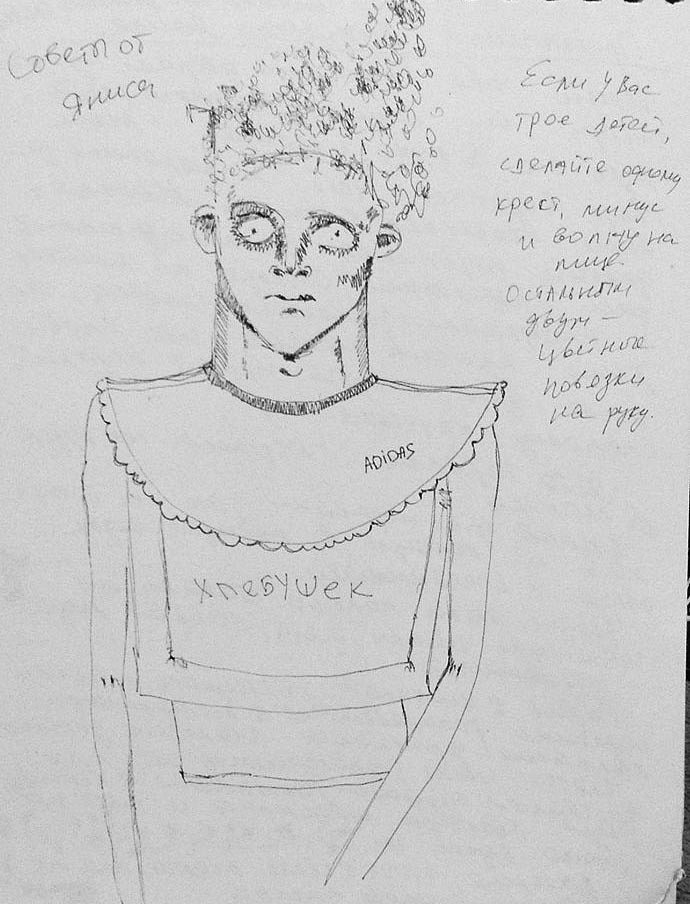 Советы от
Яниса
Если у вас
трое детей,
сделайте одному
крест, минус
и волну на
лице.
Остальным
двум —
цветные
повозки
на руку.
ADIDAS
хлебушек